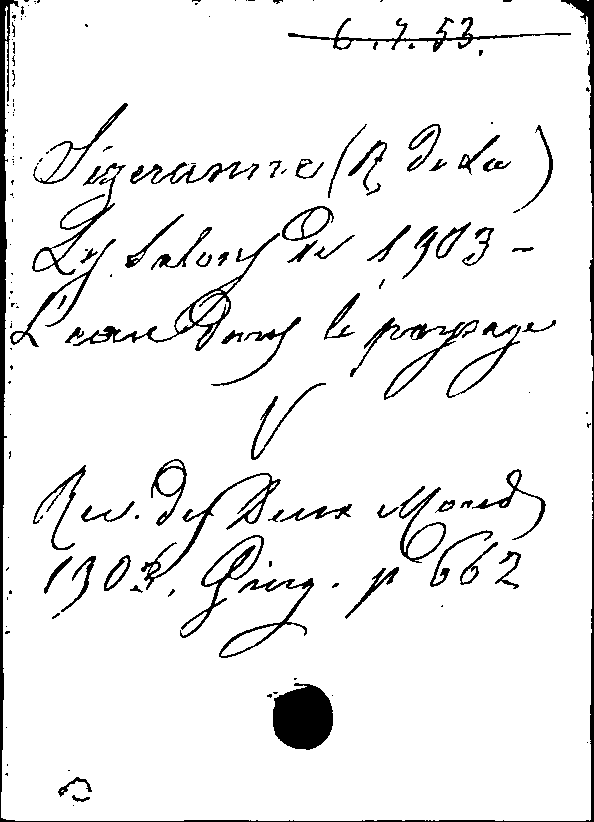 6.7.53.
Sizeranne (R de La)
Les Salons de 1903 -
L'eau dans le paysage
V
Rev. des Deux Mondes
1903, p 662